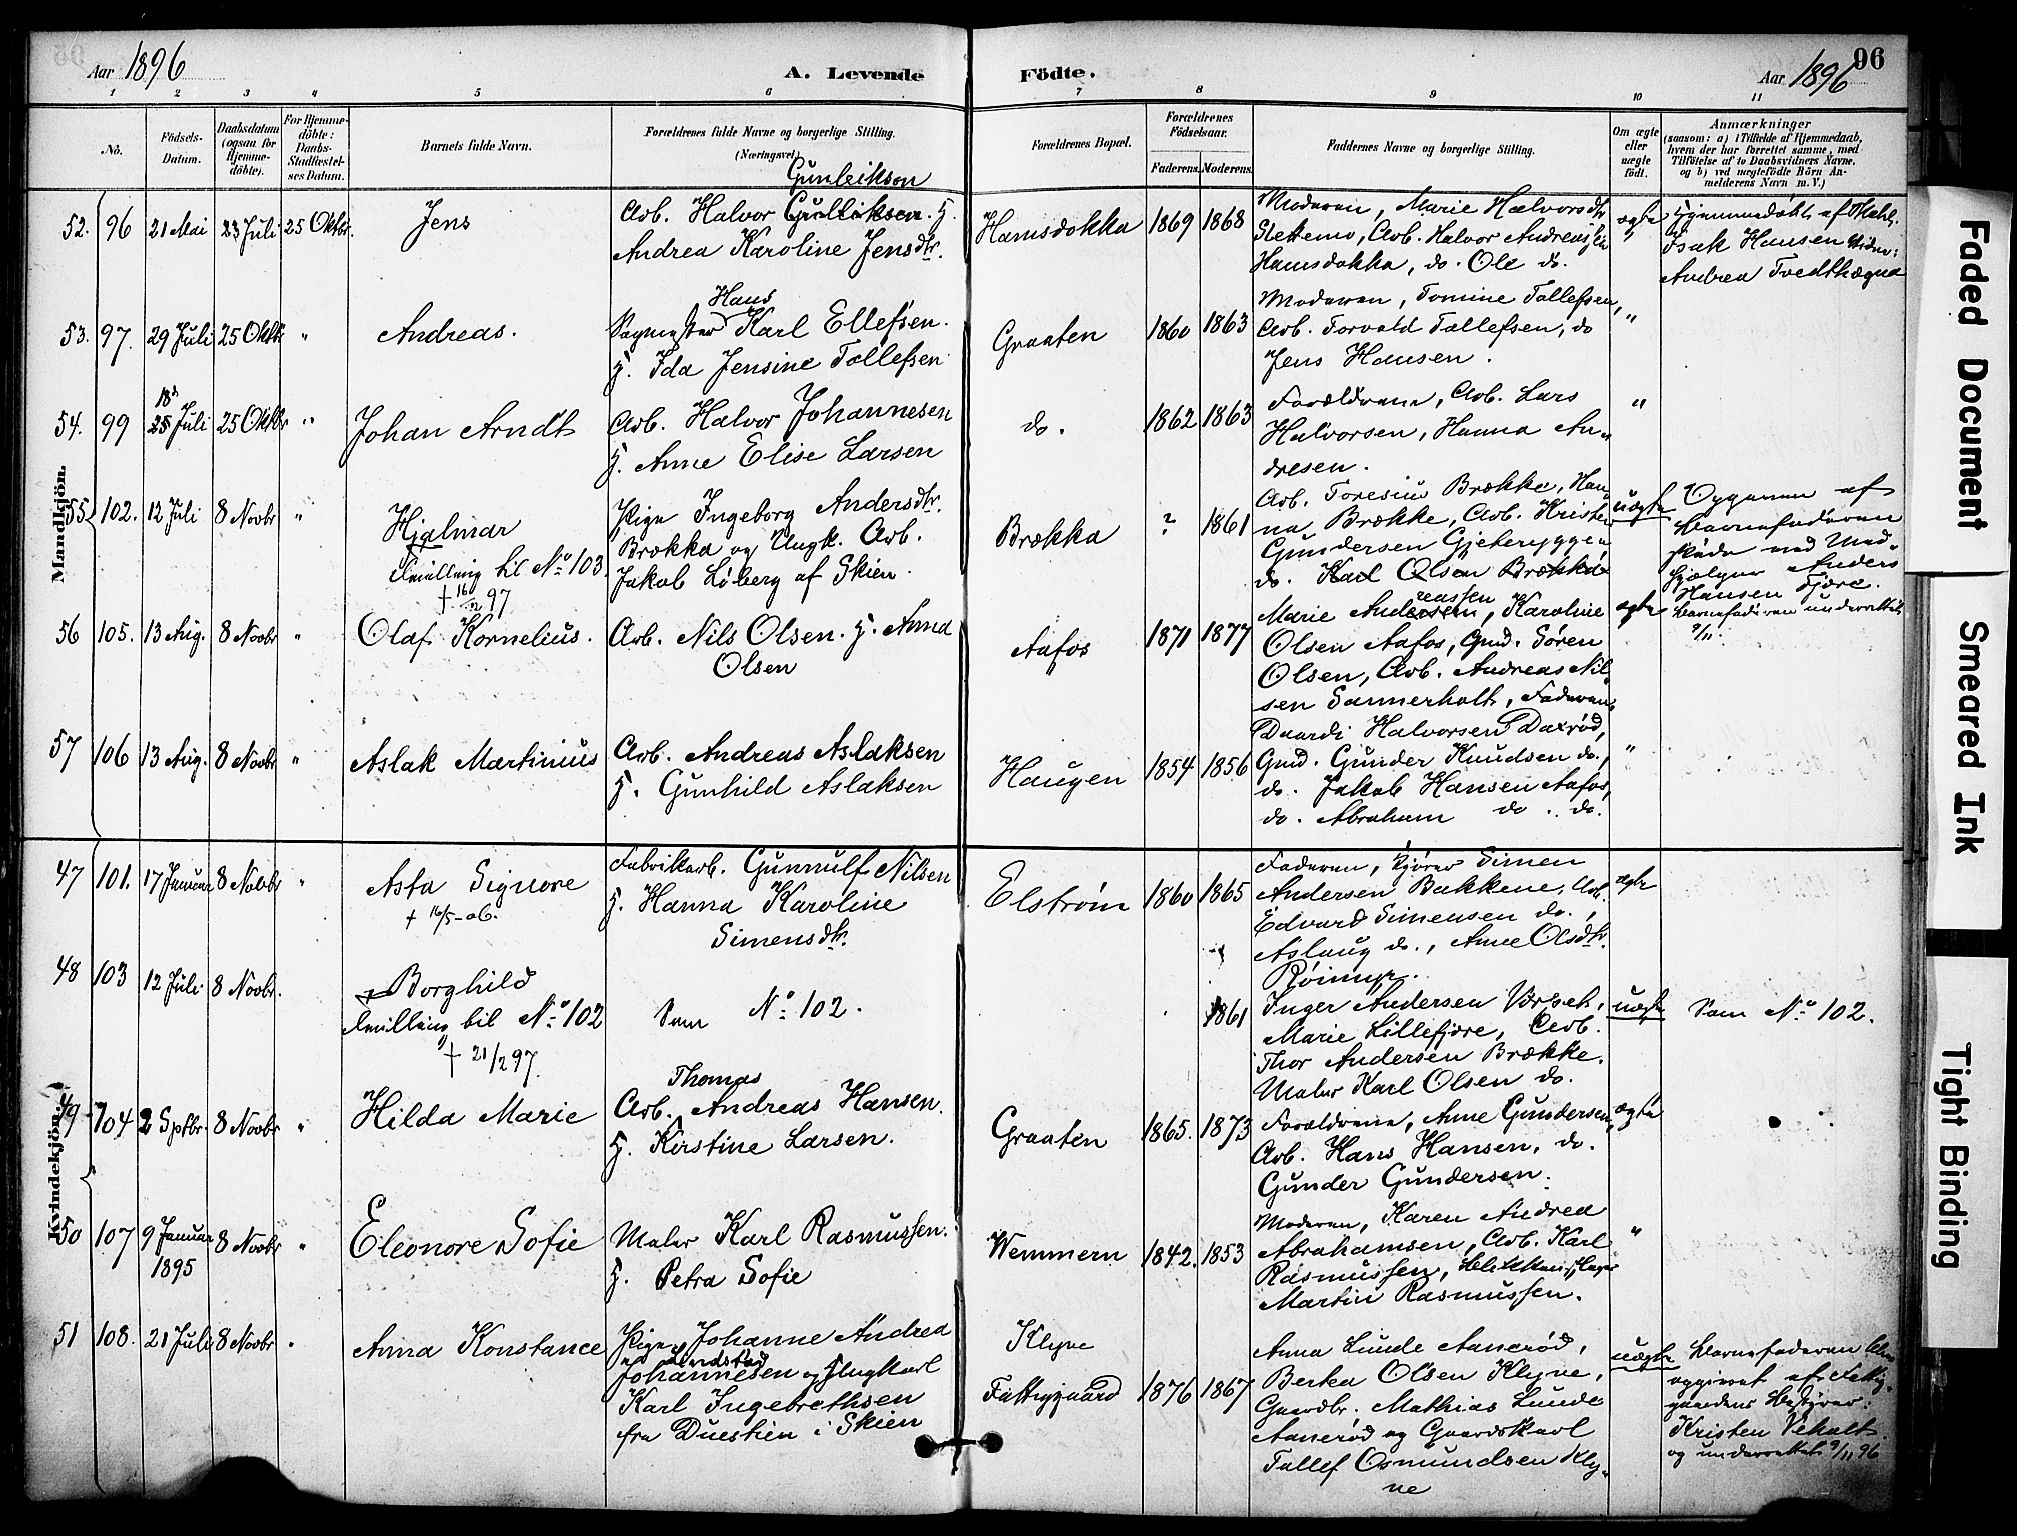 Aar 1896
A. Levende
Födte.
Aar 1896
96
1 2 3 4 5 6 7 8 9 10 11
No.
Födsels-
Datum.
Daabsdatum
(ogsaa for
Hjemme-
döbte).
For Hjemme-
döbte:
Daabs-
Stadfæstel-
ses Datum.
Barnets fulde Navn.
Forældrenes fulde Navne og borgerlige Stilling.
(Næringsvei.)
Forældrenes Bopæl.
Forældrenes
Födselsaar.
Faderens. Moderens.
Faddernes Navne og borgerlige Stilling.
Om ægte
eller
uægte
födt.
Anmærkninger
(saasom: a) i Tilfælde af Hjemmedaab,
hvem der har forrettet samme, med
Tilföielse af to Daabsvidners Navne.
og b) ved uægtefödte Börn An-
melderens Navn m. V.)
Mandkjön.
52. 96 21 Mai 23 Juli 25 Oktbr. Jens
Gunleikson
Arb. Halvor Gulliksen. H.
Andrea Karoline Jensdtr.
Hamsdokka 1869 1868
Moderen, Marie Halvorsdtr
Slettemo, Arb. Halvor Andreassen
Hamsdokka, do. Ole do.
ægte
Hjemmedøbt af
Isak Hansen
Andrea
53. 97. 29 Juli 25 Oktbr " Andreas.
Hans
Sagmester Karl Ellefsen.
H. Ida Jensine Tollefsen
Graaten 1860 1863
Moderen, Tomine Tollefsen,
Arb. Torvald Tollefsen, do
Jens Hansen.
"
54. 99 18d 25 Juli 25 Oktbr " Johan Arndt
Arb. Halvor Johannesen
H. Anne Elise Larsen
do. 1862 1863
Forældrene, Arb. Lars
Halvorsen, Hanna An-
dresen.
"
55 102. 12 Juli 8 Novbr " Hjalmar
Tvilling til No 103
† 16/12 97
Pige Ingeborg Andersdtr.
Brækka og Ungk. Arb.
Jakob Löberg af Skien.
Brækka ? 1861
Arb. Toresius Brække, Han-
na Brække, Arb. Kristen
Gundersen Gjeteryggen
do. Karl Olsen Brækka
uægte
Opgaven af
Barnefaderen
skede ved
Anders
Hansen
Barnefaderen underrettet
9/11.
56 105. 13 Aug. 8 Novbr " Olaf Kornelius.
Arb. Nils Olsen. H. Anna
Olsen
Aafos 1871 1877
Marie Andreassen, Karoline
Olsen Aafos, Gmd. Sören
Olsen, Arb. Andreas Nil-
sen Sannerholt, Faderen.
ægte
57 106 13 Aug. 8 Novbr " Aslak Martinius
Arb. Andreas Aslaksen
H. Gunhild Aslaksen
Haugen 1854 1856
Halvorsen Daxröd,
Gmd. Gunder Knudsen do.,
do. Jakob Hansen Aafos,
do. Abraham do. do.
"
Kvindekjön.
47 101. 17 Januar 8 Novbr " Asta Signore
† 16/5-06.
Fabrikarb. Gunnulf Nilsen
H. Hanna Karoline
Simensdtr.
Elström 1860 1865
Faderen, Simen
Andersen Bakkene, Arb.
Edvard Simensen do.,
Aslaug do., Anne Olsdtr.
Röimyr.
ægte
48 103 12 Juli 8 Novbr. Borghild
Tvilling til No 102
† 21/2 97.
Som No 102.
1861
Inger Andersen
Marie Lillefjære, Arb.
Thor Andersen Brække.
Maler Karl Olsen do.
uægte
Som No 102.
49 104 2 Sptbr. 8 Novbr " Hilda Marie
Thomas
Arb. Andreas Hansen.
H. Kirstine Larsen.
Graaten 1865. 1873
Forældrene, Anne Gundersen,
Arb. Hans Hansen, do.
Gunder Gundersen.
ægte
50 107 9 Januar 1895 8 Novbr " Eleonore Sofie
Maler Karl Rasmussen.
H. Petra Sofie
Wemmern 1842. 1853
Moderen, Karen Andrea
Abrahamsen, Arb. Karl
Rasmussen,
Martin Rasmussen.
"
51 108. 21 Juli 8 Novbr " Anna Konstance
Pige Johanne Andrea
Johannesen og Ungkarl
Karl Ingebrethsen
fra Duestien i Skien
Klyve
Fattiggaard 1876 1867
Anna Lunde Aanerød,
Berta Olsen Klyve,
Gaardbr. Mathias Lunde
Aanerød og Gaardskarl
Tallef Osmundsen Kly-
ve
uægte
Barnefaderen blev
opgivet af Fattig-
gaardens Bestyrer:
Kristen
og underrettet 9/11 96
Faded Document
Smeared Ink
Tight Binding